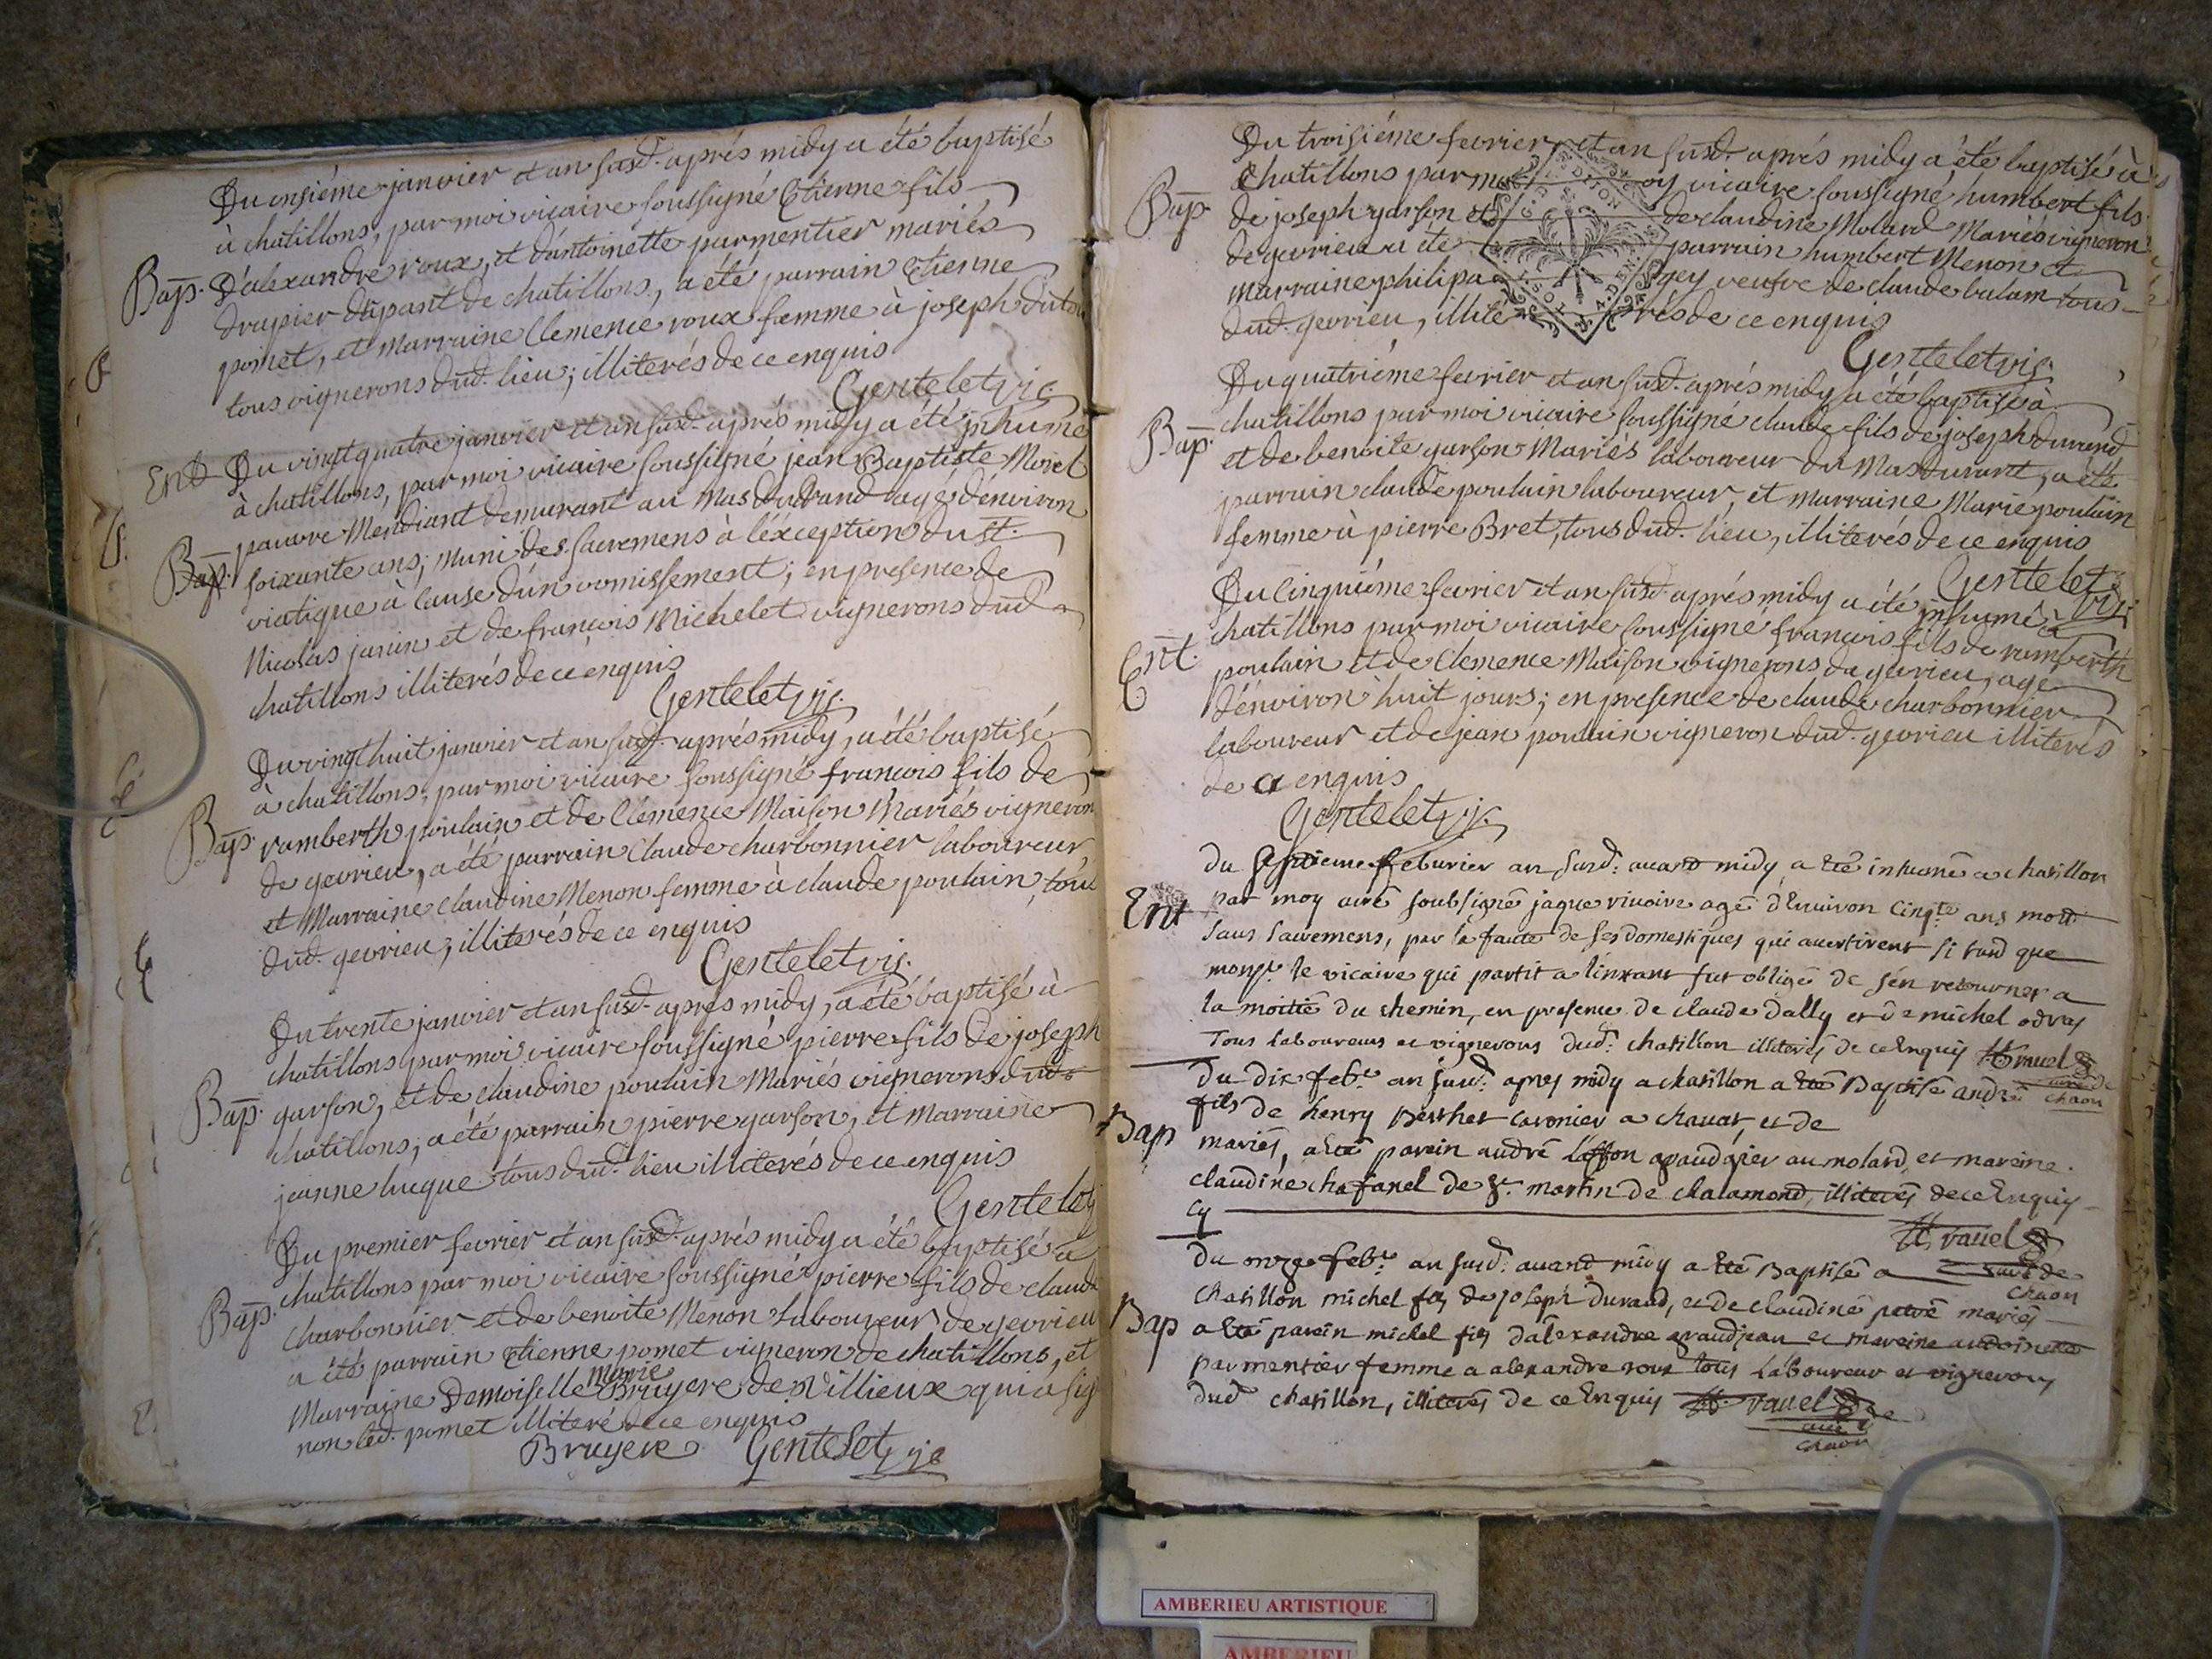 Du onsiéme janvier et an susd. aprés midy a été baptisé
à chatillons, par moi vicaire soussigné Etienne fils
Bap. D'alexandre roux, et d'antoinette parmentier mariés
drapier dupant de chatillons, a été parrain Etienne
pomet, et marraine Clemence roux femme à joseph dutou
tous vignerons dud. lieu; illiterés de ce enquis
Gentelet vic
Ent Du vingt quatre janvier et an susd. aprés midy a été inhumé
à chatillons, par moi vicaire soussigné jean Baptiste Morel
pauvre Mendiant demurant au Mas Durand agé d'énviron
Bap. soixante ans; muni des sacremens à l'éxception du st.
viatique à cause d'un vomissement; en presence de
Nicolas janin et de francois Michelet vignerons dud
chatillons illiterés de ce enquis
Gentelet vic.
Du vingt huit janvier et an susd. aprés midy, a été baptisé
à chatillons, par moi vicaire soussigné francois fils de
Bap. ramberth poulain et de Clémence Maison Mariés vigneron
de gevrieu, a été parrain Claude charbonnier laboureur
et Marraine claudine Menon femme à claude poulain, tous
dud. gevrieu; illiterés de ce enquis
Gentelet vic.
Du trente janvier et an susd. aprés midy, a été baptisé à
chatillons par moi vicaire soussigné pierre fils de joseph
Bap. garson, et de claudine poulain Mariés vignerons dud.
chatillons; a été parrain pierre garson, et Marraine
jeanne huque tous dud. lieu illiterés de ce enquis
Gentelet
Du premier fevrier et an susd. aprés midy a été baptisé à
chatillons par moi vicaire soussigné pierre fils de claude
Bap. Charbonnier et de benoite Menon Laboureur de gevrieu
a été parrain Etienne pomet vigneron de chatillons, et
marie
Marraine Demoiselle Bruyere de Villieux qui a sig
non led. pomet illiteré de ce enquis
Bruyere Gentelet vic
Du troisiéme fevrier et an susd. aprés midy a été baptisé à
Chatillons par moy vicaire soussigné humbert fils
Bap. de joseph garson et de claudine Molard Mariés vigneron
de gevrieu a été parrain humbert Menon et
marraine philipa gey veufve de claude balam tous
dud. gevrieu, illiterés de ce enquis
Gentelet vic.
Du quatriéme fevrier et an susd. aprés midy a été baptisé à
chatillons par moi vicaire soussigné claude fils de joseph durand
Bap. et de benoite garson Mariés laboureur du Mas durant, a été
parrain claude poulain laboureur, et marraine Marie poulain
femme à pierre Bret, tous dud. lieu, illiterés de ce enquis
Gentelet vic
Du cinquiéme fevrier et an susd. aprés midy a été inhumé à
chatillons par moi vicaire soussigné francois fils de ramberth
Ent. poulain et de Clemence Maison vignerons de gevrieu, agé
d'énviron huit jours; en presence de claude charbonnier
laboureur et de jean poulain vigneron dud. gevrieu illiterés
de ce enquis
Gentelet vic.
Du septieme feburier an susd: auant midy a eté inhumé a chatillon
Ent par moy curé soubsigné jaque viuoire agé d'Enuiron Cinqte ans mort
sans sacremens, par la faute de ses domestiques qui auertirent si tard que
monsr le vicaire qui partit a l'instant fut obligé de s'én retourner a
la moitié du chemin, en presence de claude dally et de michel odras
Tous laboureurs et vignerons dud: chatillon illiterés de ce Enquis H ravel
curé de chaon
Du dix febr an susd: apres midy a chatillon a eté Baptisé andré
fils de henry Berthet a chauat, et de
Bap mariés, a eté parein andré au molard, et mareine
claudine chafanel de st. martin de chalamond, illiterés de ce Enquis
Cy
H ravel
curé de
chaon
Du onze febr. an susd. auant midy a eté Baptisé a
Chatillon michel fils de joseph durand, et de claudine mariés
Bap a eté parein michel fils d'alexandre grandjean et mareine antoinete
parmentier femme a alexandre roux tous laboureur et vignerons
dud chatillon, illiterés de ce Enquis H. ravel
curé de
chaon
AMBERIEU ARTISTIQUE
AMBERIEU